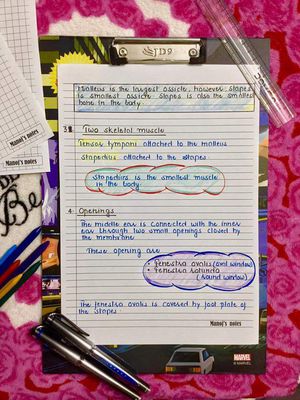 JD9
Malleus is the largest ossicle, however stapes
is smallest ossicle. Stapes is also the smallest
bone in the body
3. Two skeletal muscle
Tensor tympani attached to the malleus
stapedius attached to the stapes
Stapedius is the smallest muscle
in the body
4. Openings
The middle ear is connected with the inner
ear through two small openings closed by
the membrane
These opening are
• fenestra ovalis (oval window)
• fenestra rotunda
(Round window)
The fenestra ovalis is covered by foot plate of
the stapes
Manoj's notes
Manoj's notes
Manoj's notes
Be
MARVEL
© MARVEL